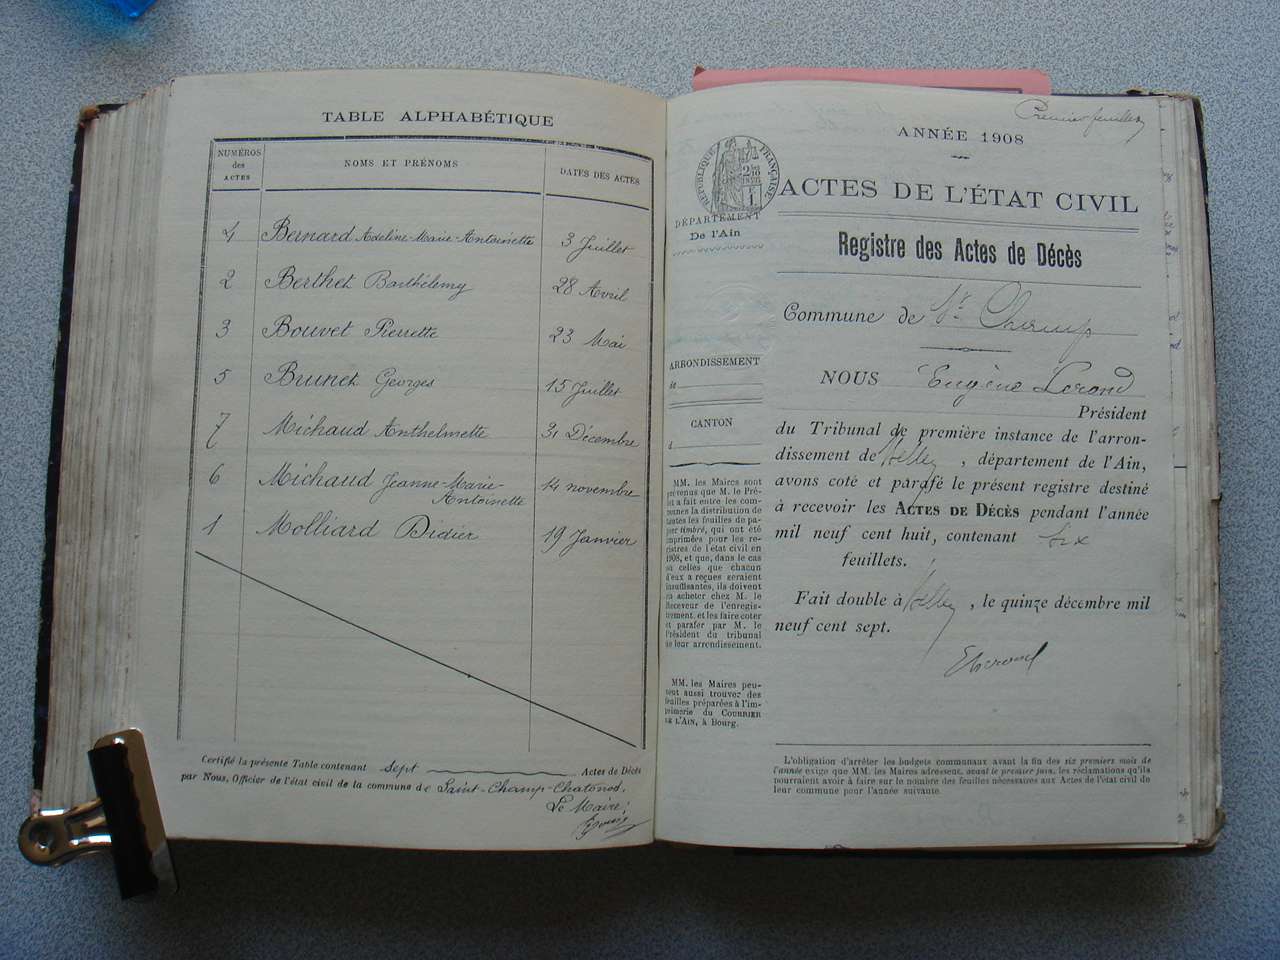 TABLE ALPHABÉTIQUE
NUMÉROS des ACTES NOMS ET PRÉNOMS DATES DES ACTES
4 Bernard Adeline-Marie-Antoinette 3 Juillet
2 Berthet Barthélemy 28 Avril
3 Bouvet Pierrette 23 Mai
5 Brunet Georges 15 Juillet
7 Michaud Anthelmette 31 Décembre
6 Michaud Jeanne-Marie-
Antoinette 14 novembre
1 Molliard Didier 19 Janvier
Certifié la présente Table contenant sept Actes de Décès
par Nous, Officier de l'état civil de la commune de Saint-Champ-Chatonod.
Le Maire:
Premier feuillet
ANNÉE 1908
RÉPUBLIQUE FRANÇAISE
ACTES DE L'ÉTAT CIVIL
DÉPARTEMENT
De l'Ain
Registre des Actes de Décès
Commune de St Champ
ARRONDISSEMENT
de
CANTON
d
NOUS Eugène Lorand
Président
du Tribunal de première instance de l'arron-
dissement de Belley, département de l'Ain,
avons coté et parafé le présent registre destiné
à recevoir les ACTES DE DÉCÈS pendant l'année
mil neuf cent huit, contenant six
feuillets.
Fait double à Belley, le quinze décembre mil
neuf cent sept.
MM. les Maires sont
prévenus que M. le Pré-
fet a fait entre les com-
munes la distribution de
toutes les feuilles de pa-
pier timbré, qui ont été
imprimées pour les re-
gistres de l'état civil en
1908, et que, dans le cas
où celles que chacun
d'eux a reçues seraient
insuffisantes, ils doivent
en acheter chez M. le
Receveur de l'enregis-
trement, et les faire coter
et parafer par M. le
Président du tribunal
de leur arrondissement.
MM. les Maires peu-
vent aussi trouver des
feuilles préparées à l'im-
primerie du COURRIER
DE L'AIN, à Bourg.
L'obligation d'arrêter les budgets communaux avant la fin des six premiers mois de
l'année exige que MM. les Maires adressent, avant le premier juin, les réclamations qu'ils
pourraient avoir à faire sur le nombre des feuilles nécessaires aux Actes de l'état civil de
leur commune pour l'année suivante.